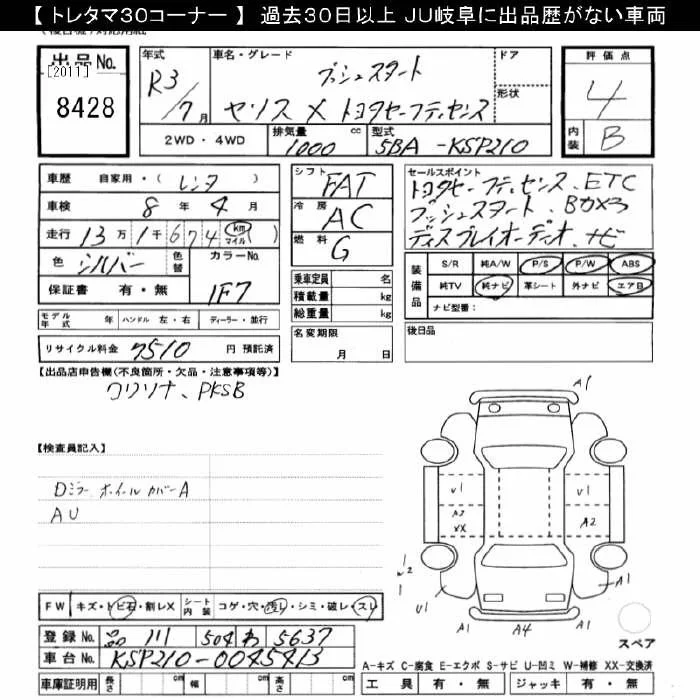 【トレタマ30コーナー】過去30日以上 JU岐阜に出品歴がない車両
出品No. [2011] 8428
年式 R3/7月
車名・グレード プッシュスタート
ヤリス X トヨタセーフティセンス
ドア
形状
評価点 4
内装 B
2WD・4WD 排気量 1000 cc 型式 5BA-KSP210
車歴 自家用・(レンタ)
車検 8年4月
走行 13万1千674 km マイル )
色 シルバー 色替 カラーNo. 1F7
保証書 有・無
モデル年式 年 ハンドル 左・右 ディーラー・並行
リサイクル料金 7510 円 預託済
シフト FAT
冷房 AC
燃料 G
乗車定員 名
積載量 kg
総重量 kg
名変期限 月 日
セールスポイント
トヨタセーフティセンス、ETC
プッシュスタート、Bカメラ
ディスプレイオーディオ、ナビ
装備品 S/R 純A/W P/S P/W ABS
純TV 純ナビ 革シート 外ナビ エアB
ナビ型番:
後日品
【出品店申告欄(不良箇所・欠品・注意事項等)】
コーナーソナー、PKSB
【検査員記入】
Dミラー ホイールカバーA
AU
A1
A1
U1
U1
A2
XX
A2
W2
U1
A1
A4
A1
A1
スペア
FW キズ・トビ石・割レX シート内装 コゲ・穴・汚レ・シミ・破レ・スレ
登録No. 品川 504 わ 5637
車台No. KSP210-0045413
車庫証明用 長さ cm 幅 cm 高さ cm
A-キズ C-腐食 E-エクボ S-サビ U-凹ミ W-補修 XX-交換済
工具 有・無 ジャッキ 有・無